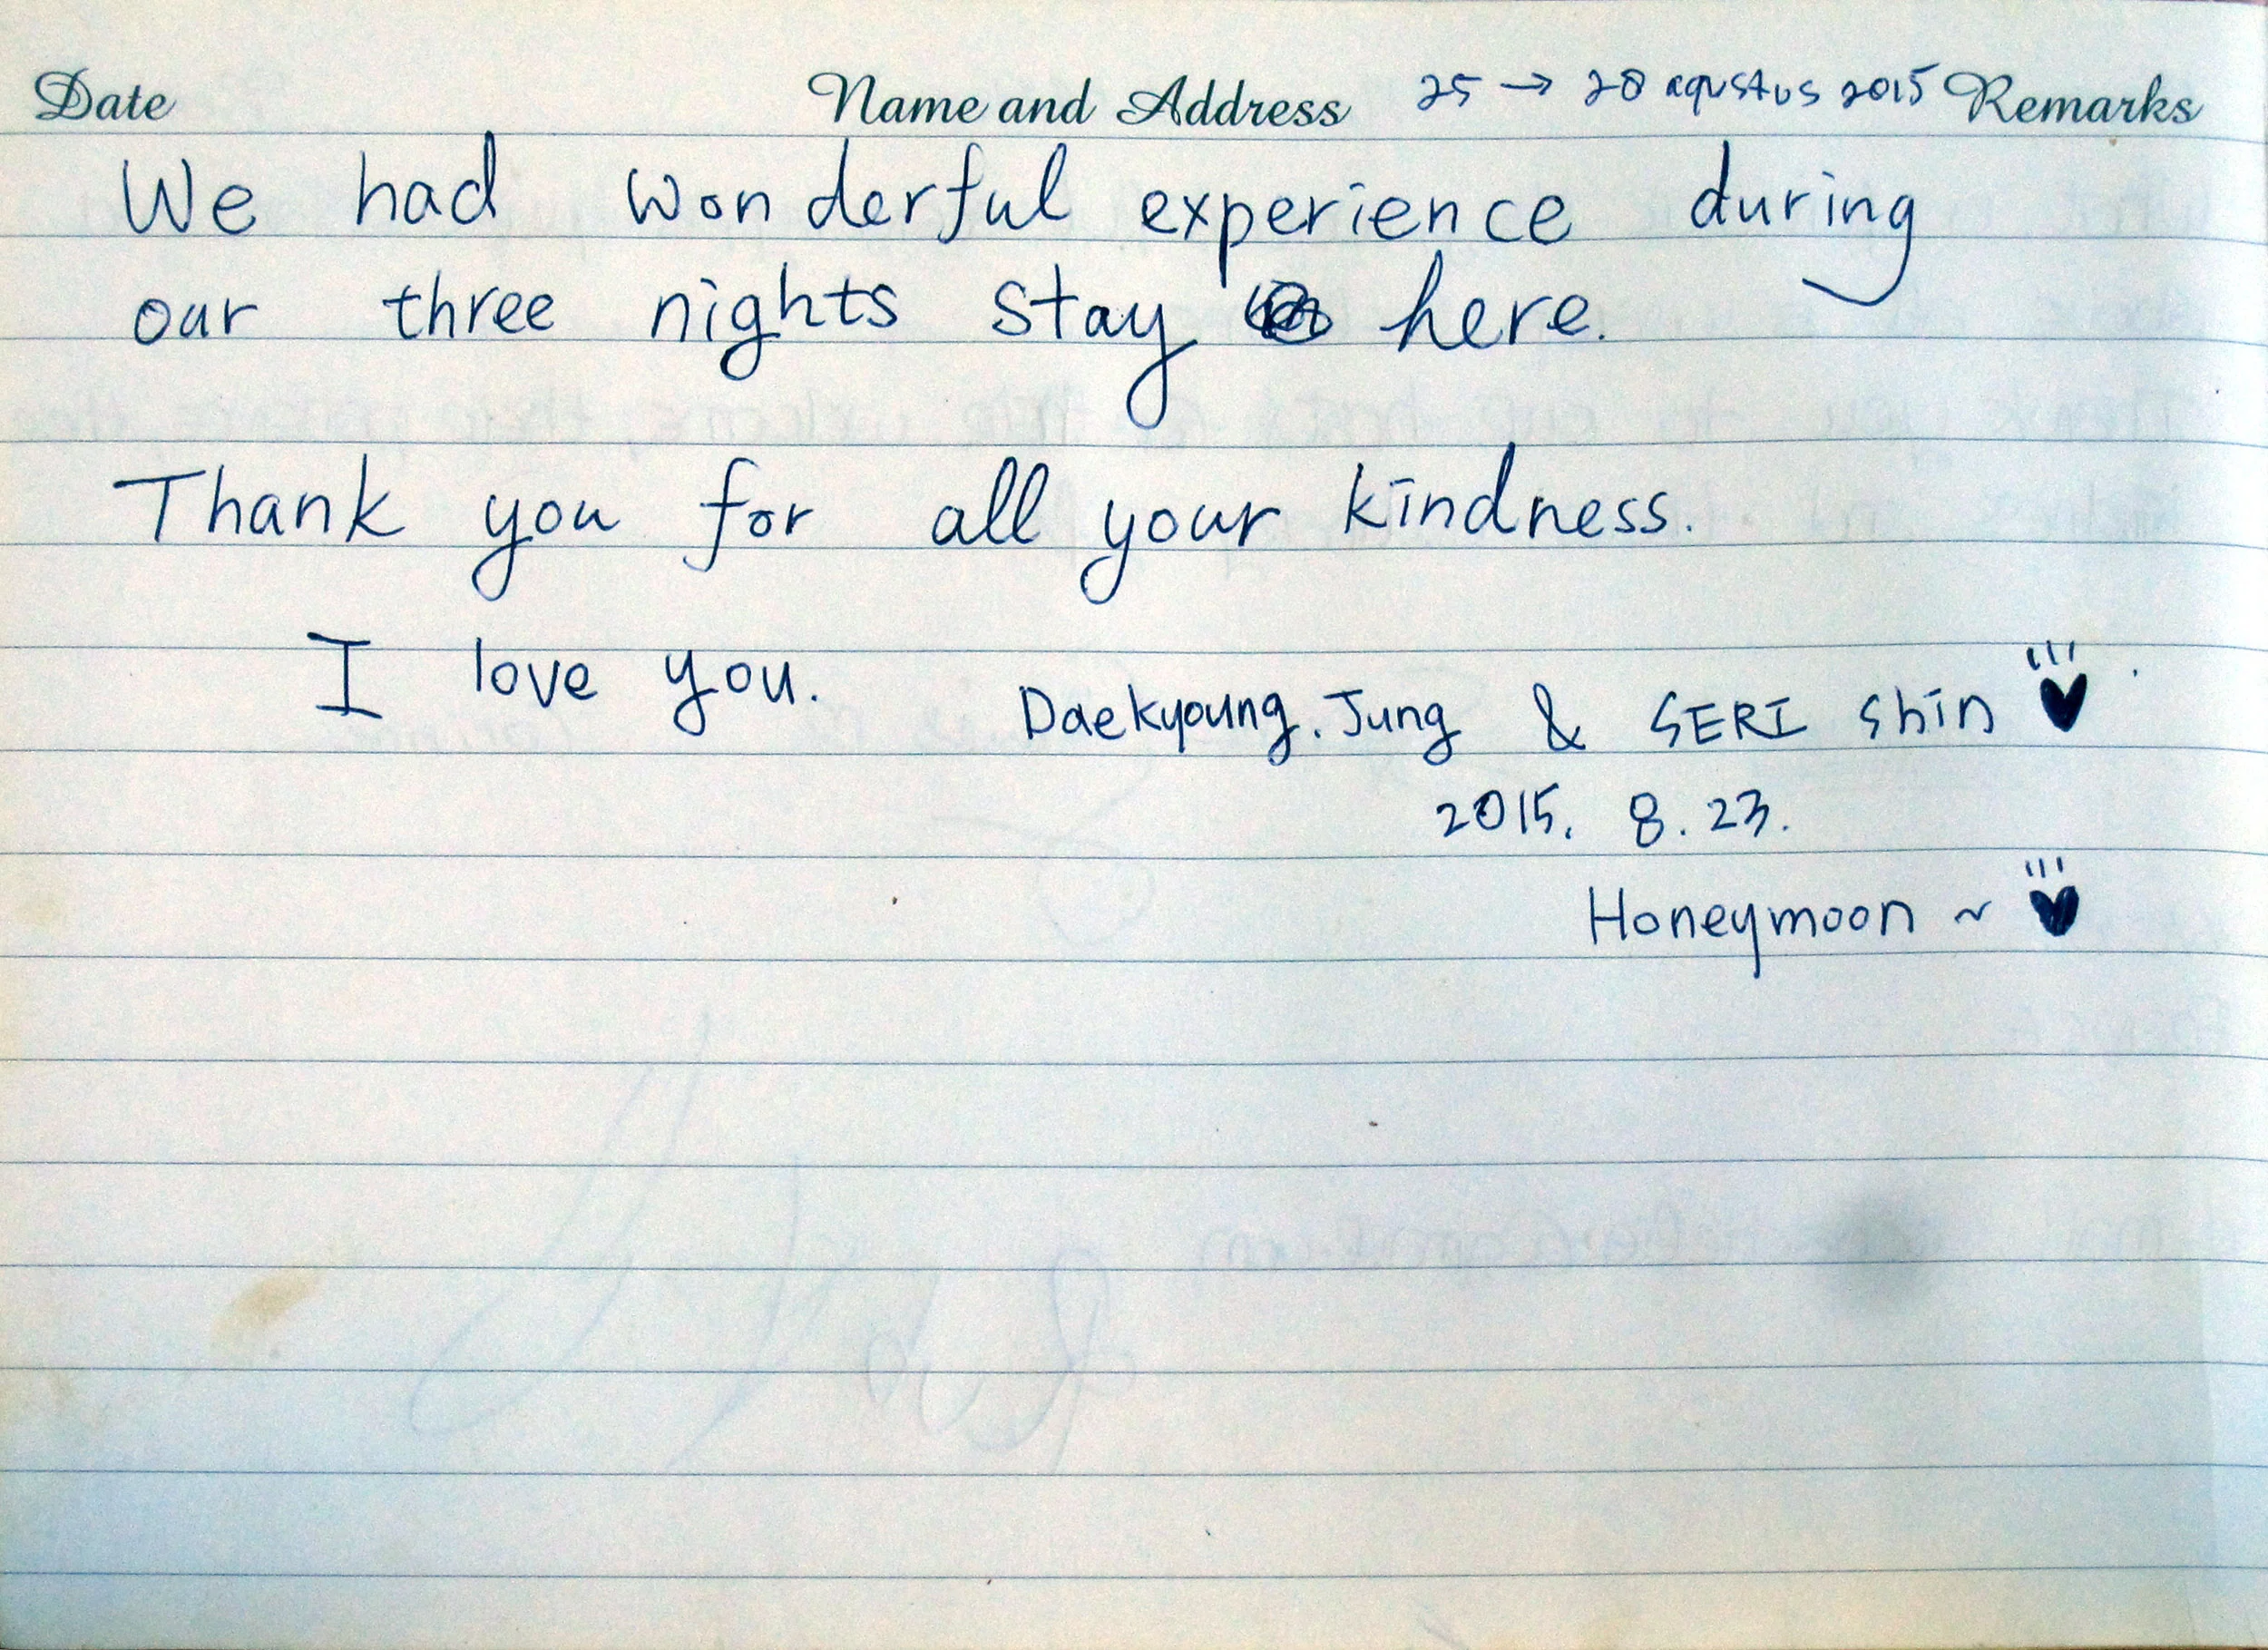 Date Name and Address 25 → 28 agustus 2015 Remarks
We had wonderful experience during
our three nights stay here.
Thank you for all your kindness.
I love you. Daekyoung. Jung & SERI Shin ♥
2015. 8. 23.
Honeymoon ~ ♥